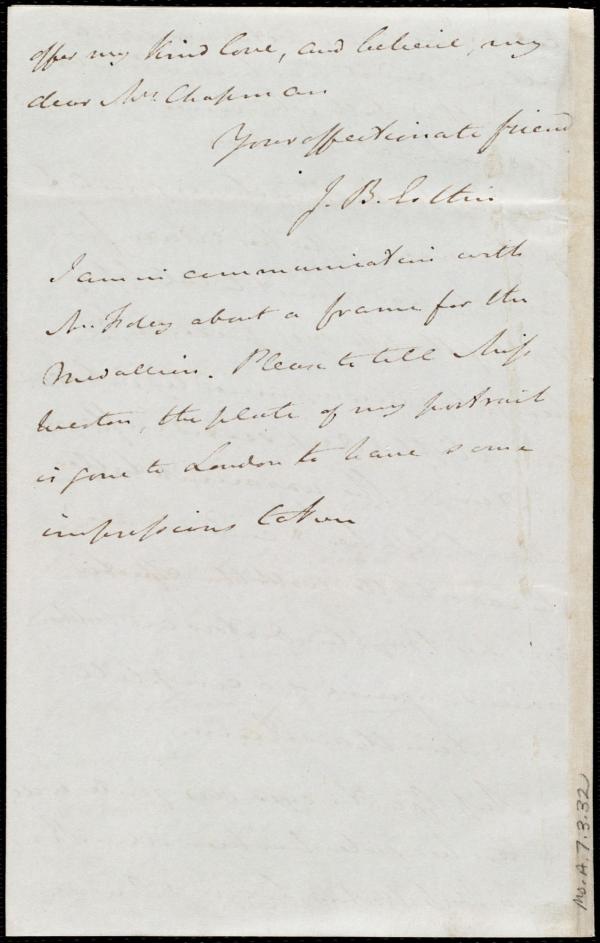 offer my kind love, and believe, my
dear Mrs. Chapman
Your affectionate friend
J. B. Estlin
I am in communication with
Mr. Foley about a frame for the
Medallion. Please to tell Miss
Weston, the plate of my portrait
is gone to London to have some
impressions taken
Ms. A. 7. 3. 32